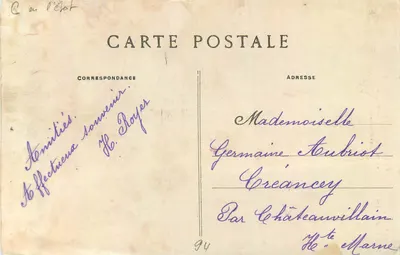 CARTE POSTALE
CORRESPONDANCE
Amitiés.
Affectueux souvenir.
H. Royer
ADRESSE
Mademoiselle
Germaine Aubriot
Créancey
Par Châteauvillain
Hte Marne